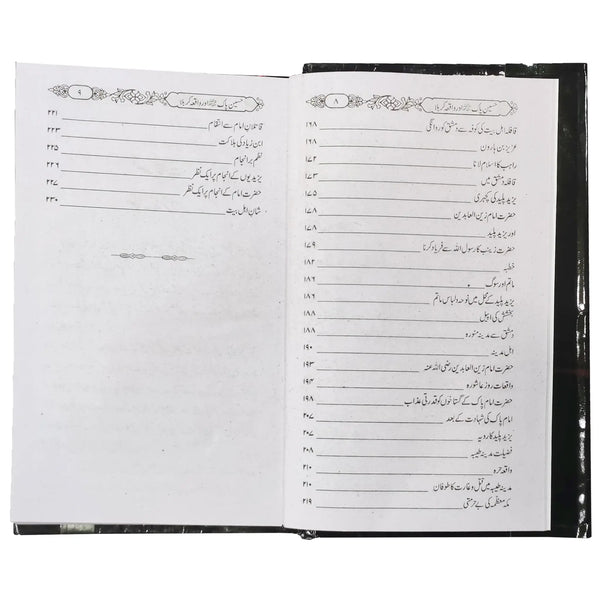 ۸
حسین پاک اور واقعہ کربلا
قافلہ اہل بیت کی کوفہ سے دمشق کو روانگی ۱۶۸
عزیز بن ہارون ۱۶۸
راہب کا اسلام لانا ۱۷۲
قافلہ دمشق میں ۱۷۳
یزید پلید کی کچہری ۱۷۵
حضرت امام زین العابدین ۱۷۸
اور یزید پلید ۱۷۸
حضرت زینب کا رسول اللہ سے فریاد کرنا ۱۷۹
خطبہ ۱۸۲
ماتم اور سوگ ۱۸۶
یزید پلید کے محل میں نوحہ و لباس ماتم ۱۸۶
بخشش کی اپیل ۱۸۸
دمشق سے مدینہ منورہ ۱۸۸
اہل مدینہ ۱۹۰
حضرت امام زین العابدین رضی اللہ عنہ ۱۹۳
واقعات روز عاشورہ ۱۹۴
حضرت امام پاک کے گستاخوں کو قدرتی عذاب ۱۹۸
امام پاک کی شہادت کے بعد ۲۰۷
یزید پلید کا رویہ ۲۰۷
فضیلت مدینہ طیبہ ۲۰۸
واقعہ حرہ ۲۱۰
مدینہ طیبہ میں قتل و غارت کا طوفان ۲۱۰
مکہ معظمہ کی بے حرمتی ۲۱۹
۹
حسین پاک اور واقعہ کربلا
قاتلان امام سے انتقام ۲۲۱
ابن زیاد کی ہلاکت ۲۲۳
نظم بر انجام ۲۲۵
یزیدیوں کے انجام پر ایک نظر ۲۲۶
حضرت امام کے انجام پر ایک نظر ۲۲۷
شان اہل بیت ۲۳۰